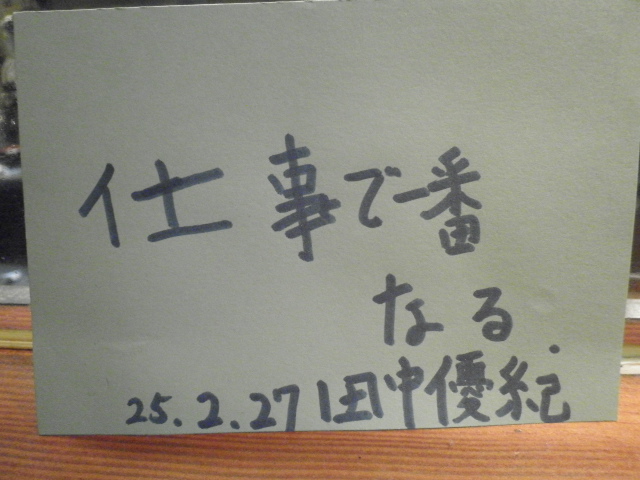 仕事で一番
なる.
25.2.27 田中優紀